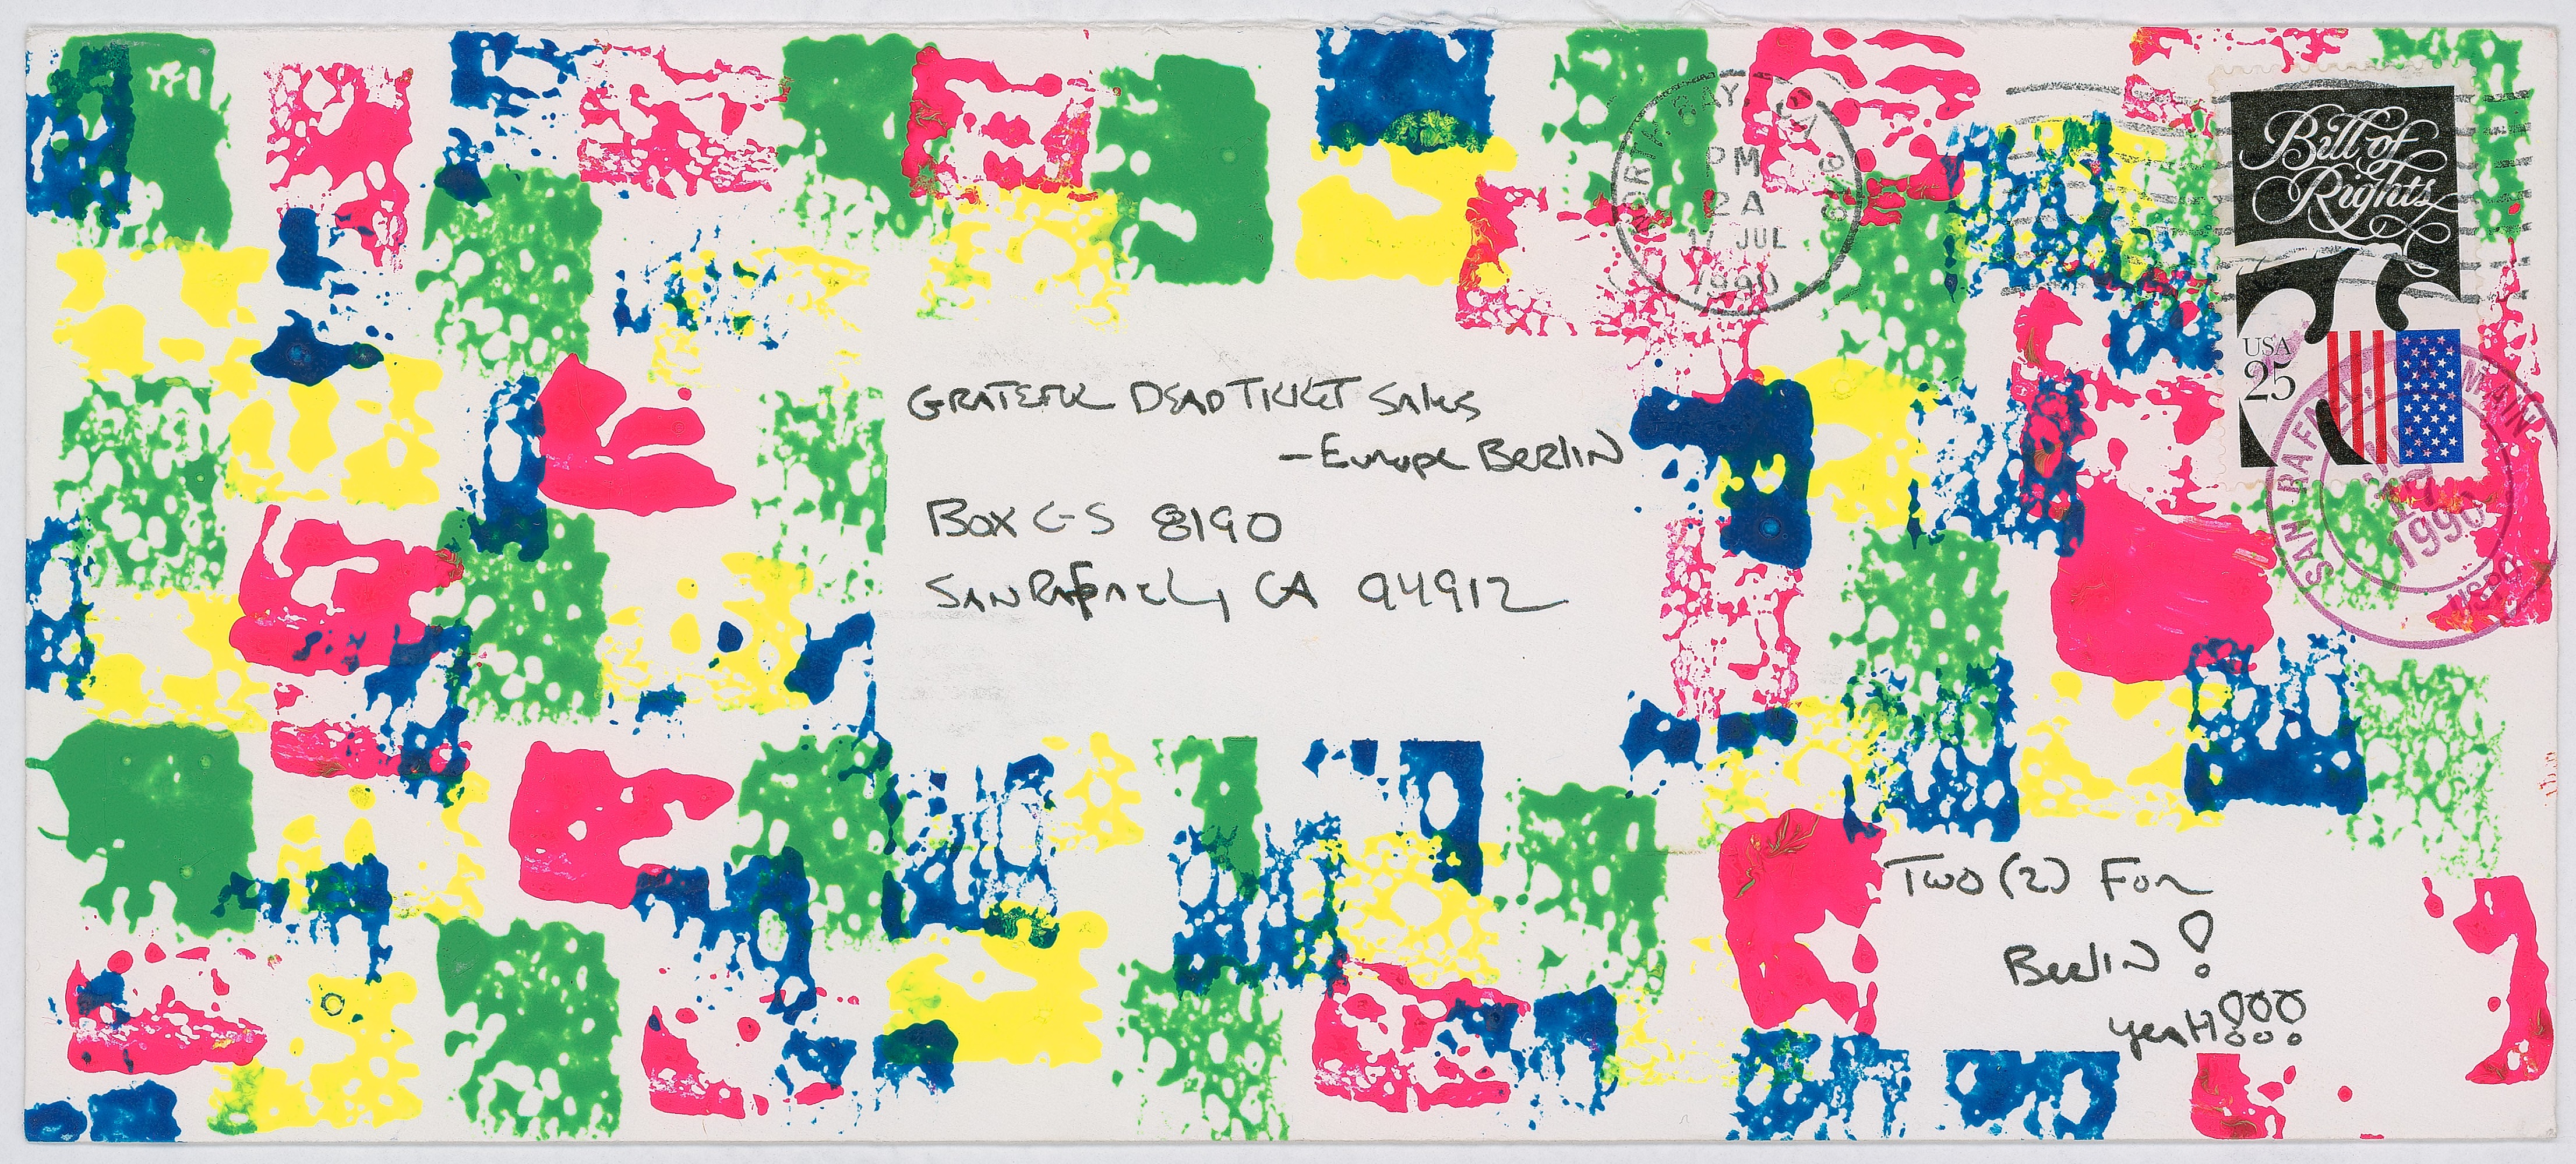 GRATEFUL DEAD TICKET SALES
—Europe BERLIN
BOX C-S 8190
SAN RAFAEL, CA 94912
TWO (2) FOR
BERLIN!
yeaH!!!
Bill of
Rights
USA
25
PM
2A
17 JUL
1990
SAN RAFAEL,
MAIN
17
1990
USPO